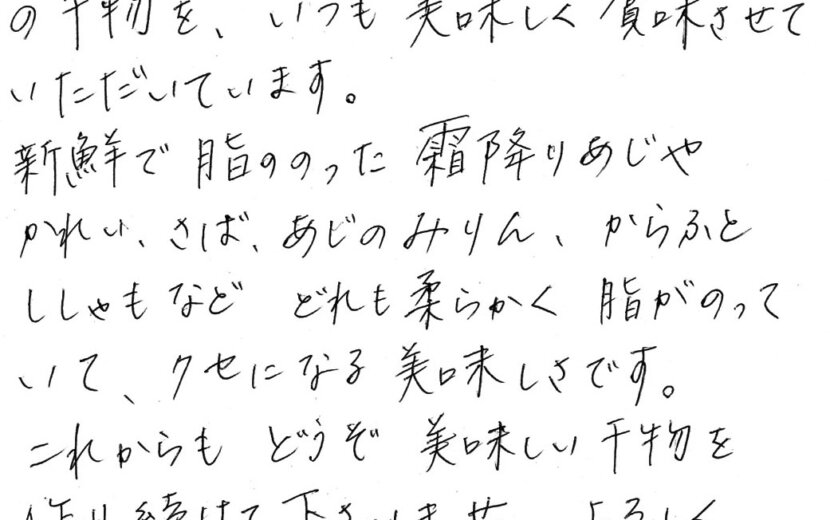 の干物を、いつも美味しく賞味させて
いただいています。
新鮮で脂ののった霜降りあじや
かれい、さば、あじのみりん、からふと
ししゃもなど どれも柔らかく 脂がのって
いて、クセになる美味しさです。
これからも どうぞ 美味しい干物を
作り続けて下さいませ。よろしく